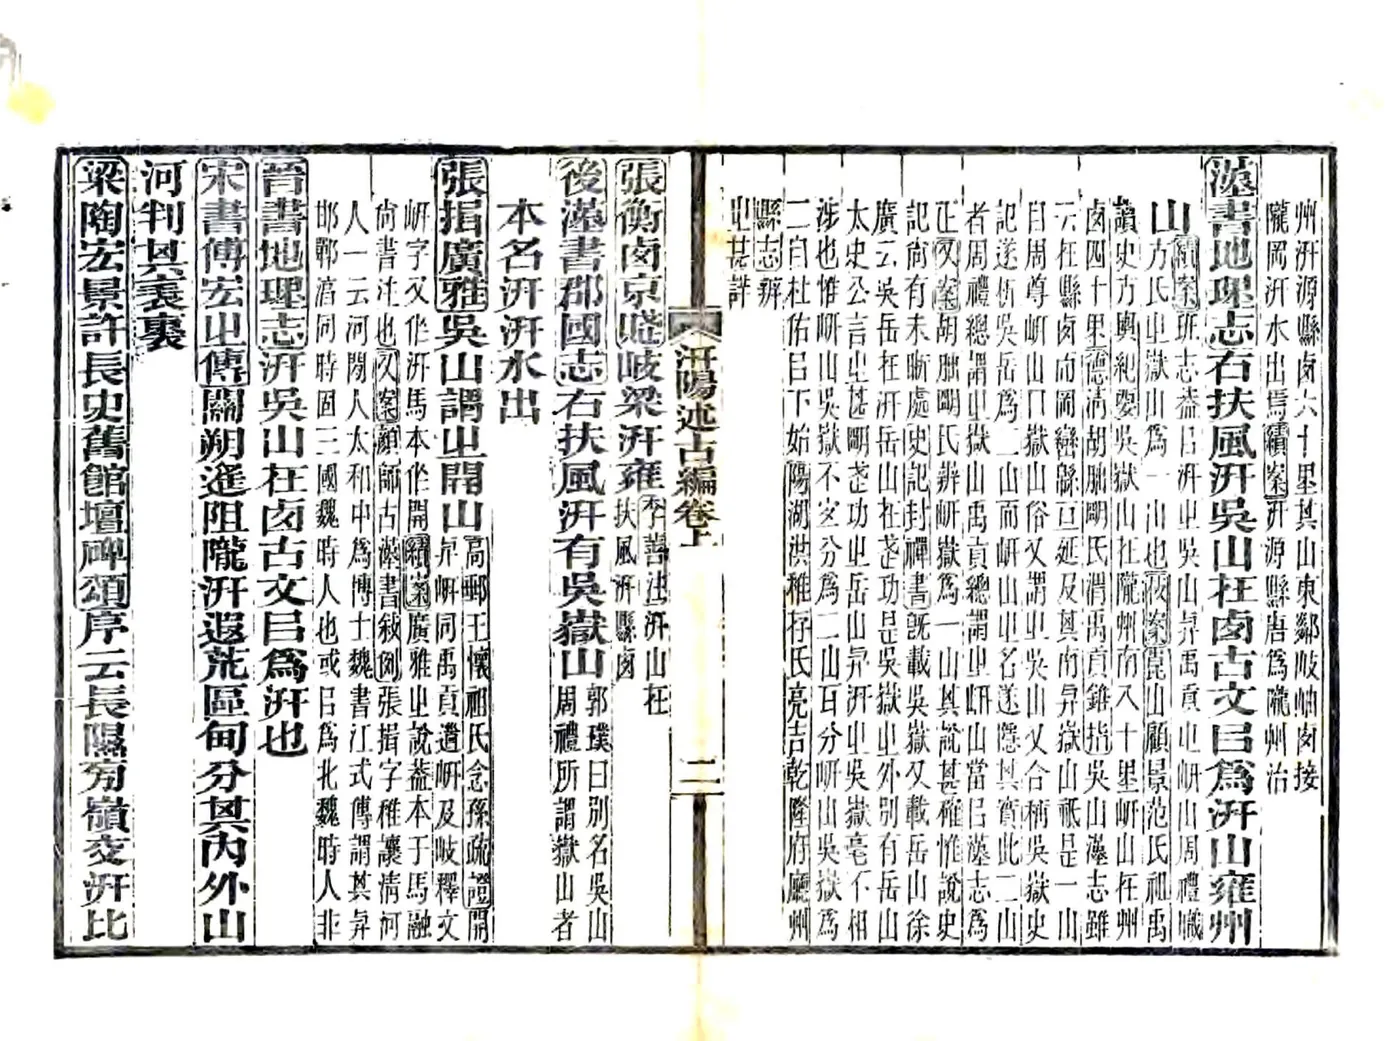 州汧源縣鹵六十里其山東鄰岐岫鹵接
隴岡汧水出焉續案汧源縣唐爲隴州治
漢書地理志右扶風汧吳山在鹵古文㠯爲汧山雍州
山續案班志葢㠯汧㞢吳山昇禹貢㞢岍山周禮職
方氏㞢嶽山爲一山也又案崑山顧景范氏祖禹
讀史方輿紀要吳嶽山在隴州南八十里岍山在州
鹵四十里德淸胡朏朙氏渭禹貢錐指吳山漢志雖
云在縣鹵而岡巒緜亘延及其南昇嶽山祇是一山
自周尊岍山曰嶽山俗又謂㞢吳山又合稱吳嶽史
記遂析吳岳爲二山而岍山㞢名遂隱其實此二山
者周禮總謂㞢嶽山禹貢總謂㞢岍山當㠯漢志爲
正又案胡朏朙氏辨岍嶽爲一山其說甚確惟說史
記尙有未晰處史記封禪書旣載吳嶽又載岳山徐
廣云吳岳在汧岳山在武功是吳嶽山㞢外別有岳山
太史公言㞢甚朙武功㞢岳山昇汧㞢吳嶽毫不相
涉也惟岍山吳嶽不宜分爲二山百分岍山吳嶽爲
二自杜佑㠯下始陽湖洪稚存氏亮吉乾隆府廳州
縣志辨
㞢甚詳
汧陽述古編卷上
二
張衡鹵京賦岐梁汧雍李善注汧山在
扶風汧縣鹵
後漢書郡國志右扶風汧有吳嶽山郭璞曰別名吳山
周禮所謂嶽山者
本名汧汧水出
張揖廣雅吳山謂㞢開山高郵王懷祖氏念孫疏證開
昇岍同禹貢道岍及岐釋文
岍字又作汧馬本作開續案廣雅㞢說葢本于馬融
尙書注也又案顏師古漢書敘例張揖字稚讓淸河
人一云河閒人太和中爲博士魏書江式傳謂其昇
邯鄲淳同時固三國魏時人也或㠯爲北魏時人非
晉書地理志汧吳山在鹵古文㠯爲汧也
宋書傅宏㞢傳關朔遙阻隴汧遐荒區甸分其內外山
河判其表裏
梁陶宏景許長史舊館壇碑頌序云長隰旁嶺交汧比